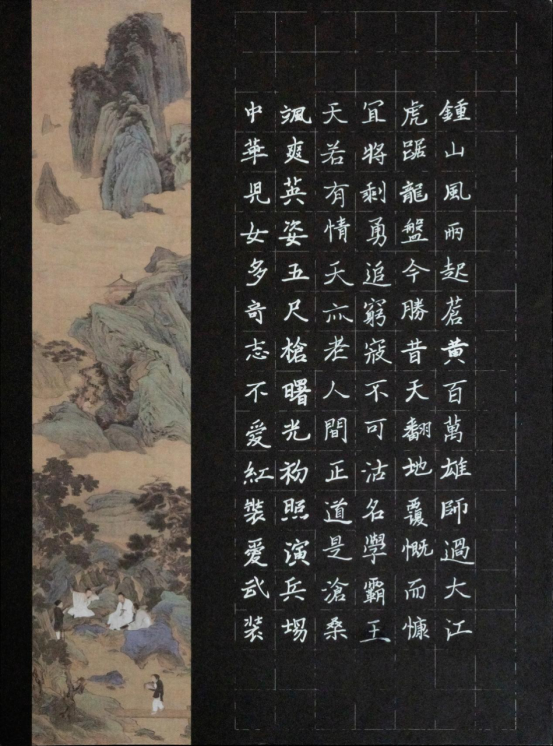 鍾山風雨起蒼黃百萬雄師過大江
虎踞龍盤今勝昔天翻地覆慨而慷
冝將剩勇追窮寇不可沽名學霸王
天若有情天亦老人間正道是滄桑
颯爽英姿五尺槍曙光初照演兵場
中華児女多奇志不愛紅裝愛武裝